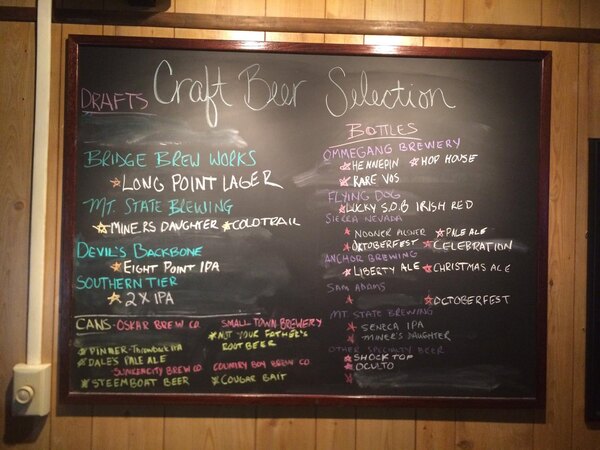 Craft Beer Selection
DRAFTS
BRIDGE BREW WORKS
LONG POINT LAGER
MT. STATE BREWING
MINERS DAUGHTER COLDTRAIL
DEVIL'S BACKBONE
EIGHT POINT IPA
SOUTHERN TIER
2X IPA
CANS - OSKAR BREW CO.
PINNER - THROWBACK IPA
DALE'S PALE ALE
BREW CO.
STEEMBOAT BEER
SMALL TOWN BREWERY
NOT YOUR FATHER'S
ROOT BEER
COUNTRY BOY BREW CO.
COUGAR BAIT
BOTTLES
OMMEGANG BREWERY
HENNEPIN HOP HOUSE
RARE VOS
FLYING DOG
LUCKY S.O.B IRISH RED
SIERRA NEVADA
NOONER PILSNER PALE ALE
OKTOBERFEST CELEBRATION
ANCHOR BREWING
LIBERTY ALE CHRISTMAS ALE
SAM ADAMS
OCTOBERFEST
MT. STATE BREWING
SENECA IPA
MINER'S DAUGHTER
OTHER SPECIALTY BEER
SHOCK TOP
OCULTO